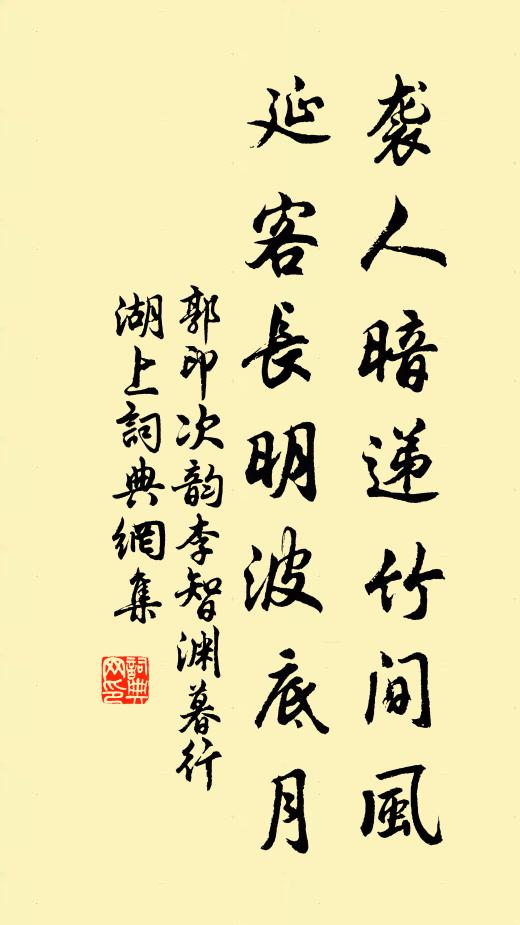 袭人暗递竹间風
延客長明波底月
郭印次韵李智渊暮行
湖上詞典網集
詞典网印